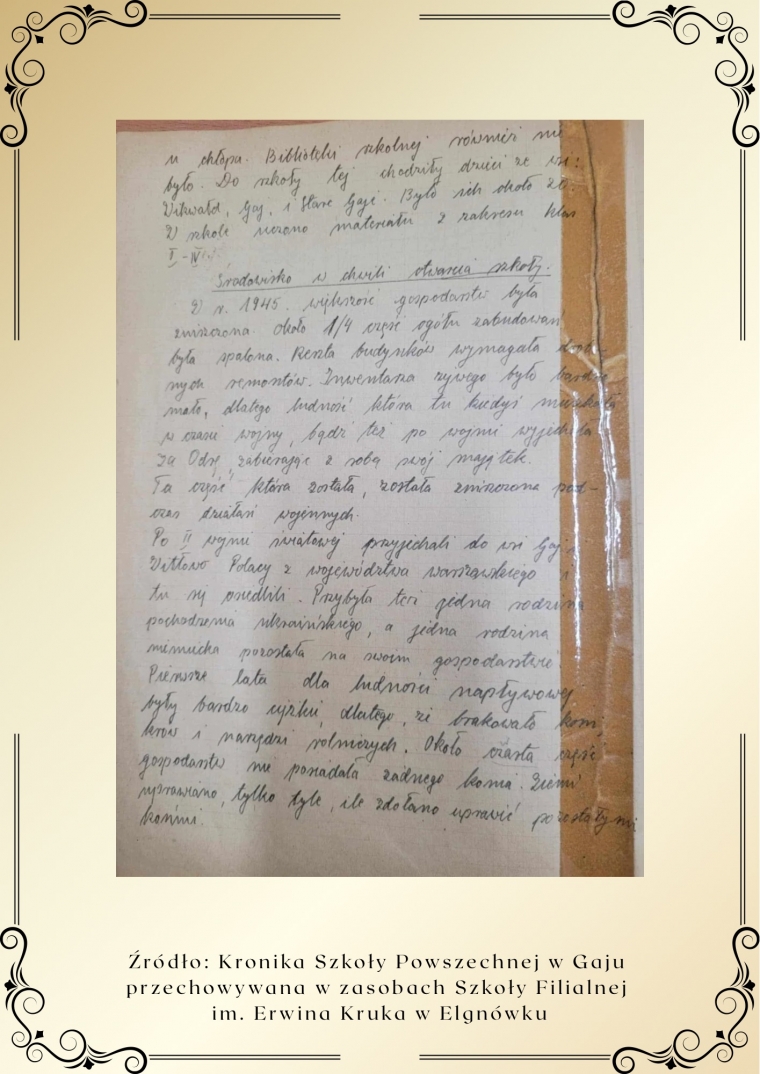 u chłopa. Biblioteki szkolnej również nie
było. Do szkoły tej chodziły dzieci ze wsi:
Witwałd, Gaj, i Stare Gaje. Było ich około 20.
W szkole uczono materiału z zakresu klas
I-IV
Środowisko w chwili otwarcia szkoły.
W r. 1945. większość gospodarstw była
zniszczona. Około 1/4 część ogółu zabudowań
była spalona. Reszta budynków wymagała
nych remontów. Inwentarza żywego było bardzo
mało, dlatego ludność która tu kiedyś mieszkała
w czasie wojny, bądź też po wojnie wyjechała
za Odrę, zabierając z sobą swój majątek.
Ta część która została, została zniszczona pod-
czas działań wojennych.
Po II wojnie światowej przyjechali do wsi Gaj
Polacy z województwa warszawskiego i
tu się osiedlili. Przybyła też jedna rodzina
pochodzenia ukraińskiego, a jedna rodzina
niemiecka pozostała na swoim gospodarstwie.
Pierwsze lata dla ludności napływowej
były bardzo ciężkie, dlatego, że brakowało koni,
krów i narzędzi rolniczych. Około część
gospodarstw nie posiadała żadnego konia. Ziemi
uprawiano, tylko tyle, ile zdołano uprawić pozostałymi
końmi.
Źródło: Kronika Szkoły Powszechnej w Gaju
przechowywana w zasobach Szkoły Filialnej
im. Erwina Kruka w Elgnówku